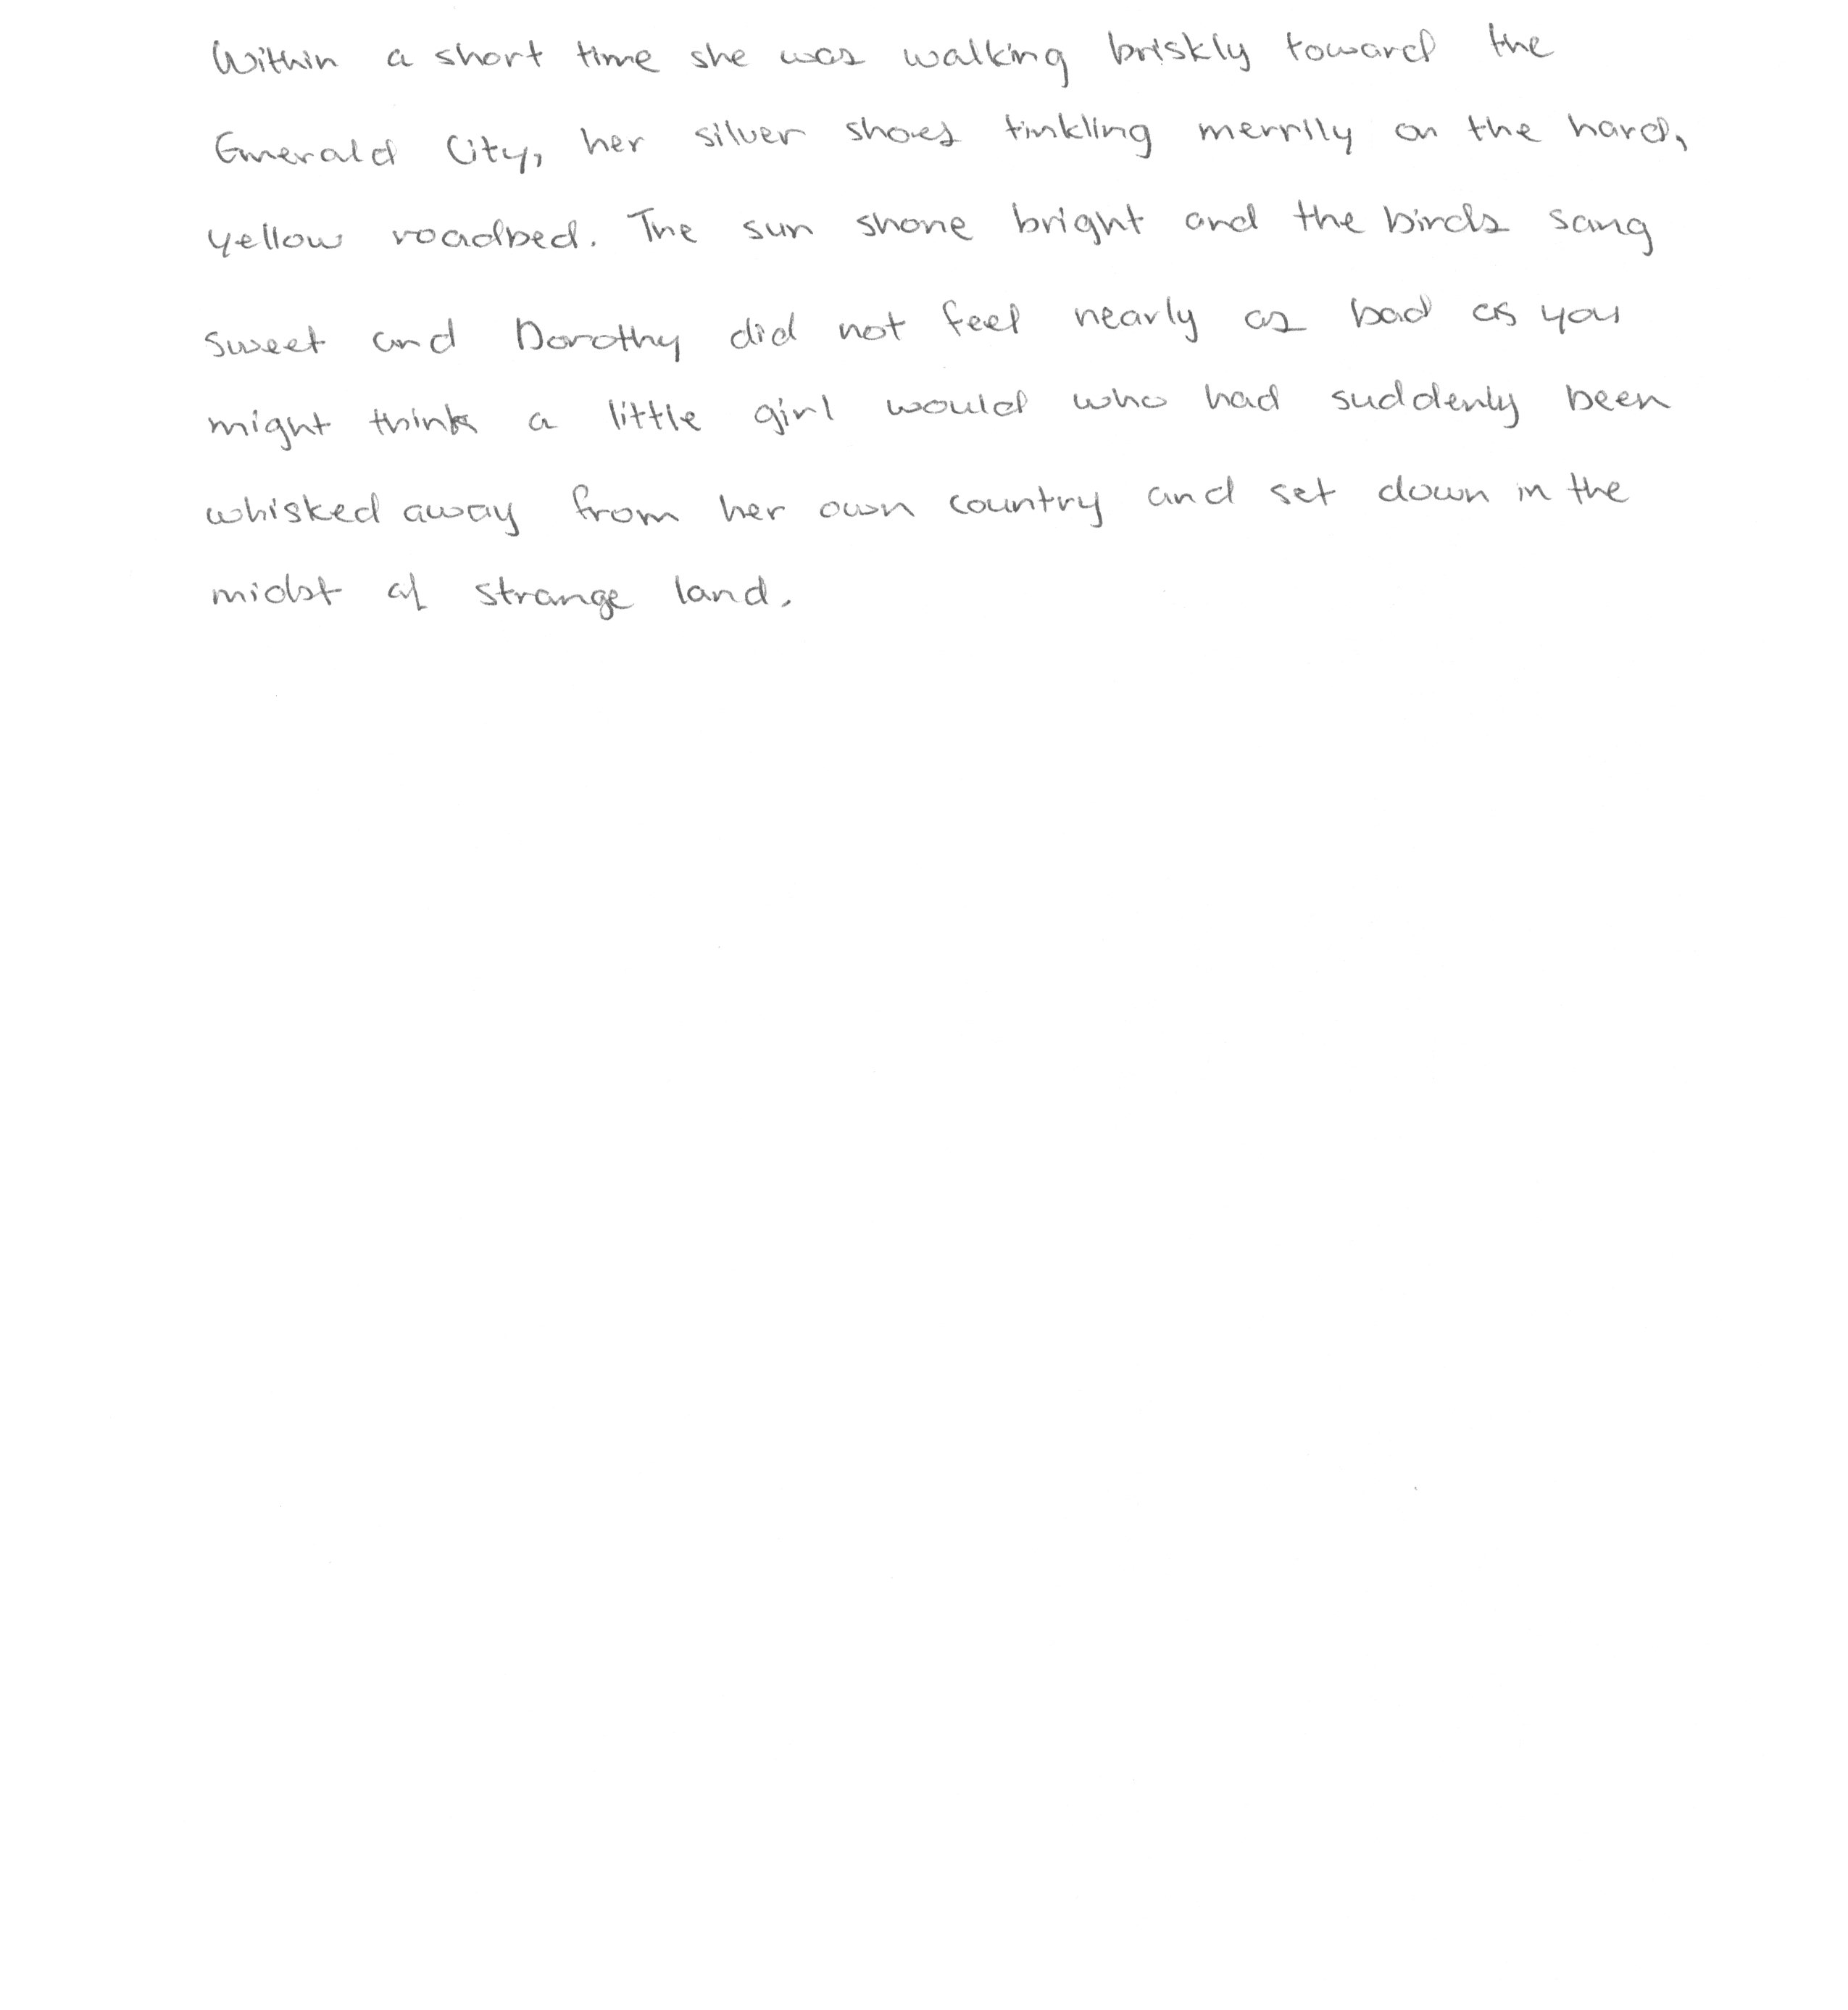 Within a short time she was walking briskly toward the
Emerald City, her silver shoes tinkling merrily on the hard,
yellow roadbed. The sun shone bright and the birds sang
sweet and Dorothy did not feel nearly as bad as you
might think a little girl would who had suddenly been
whisked away from her own country and set down in the
midst of strange land.